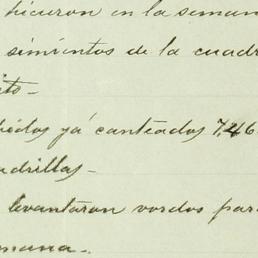 hicieron en la seman
simientos de la cuadr
ito-
ya canteados 7,46
adrillas-
levantaron vordos par
mana-